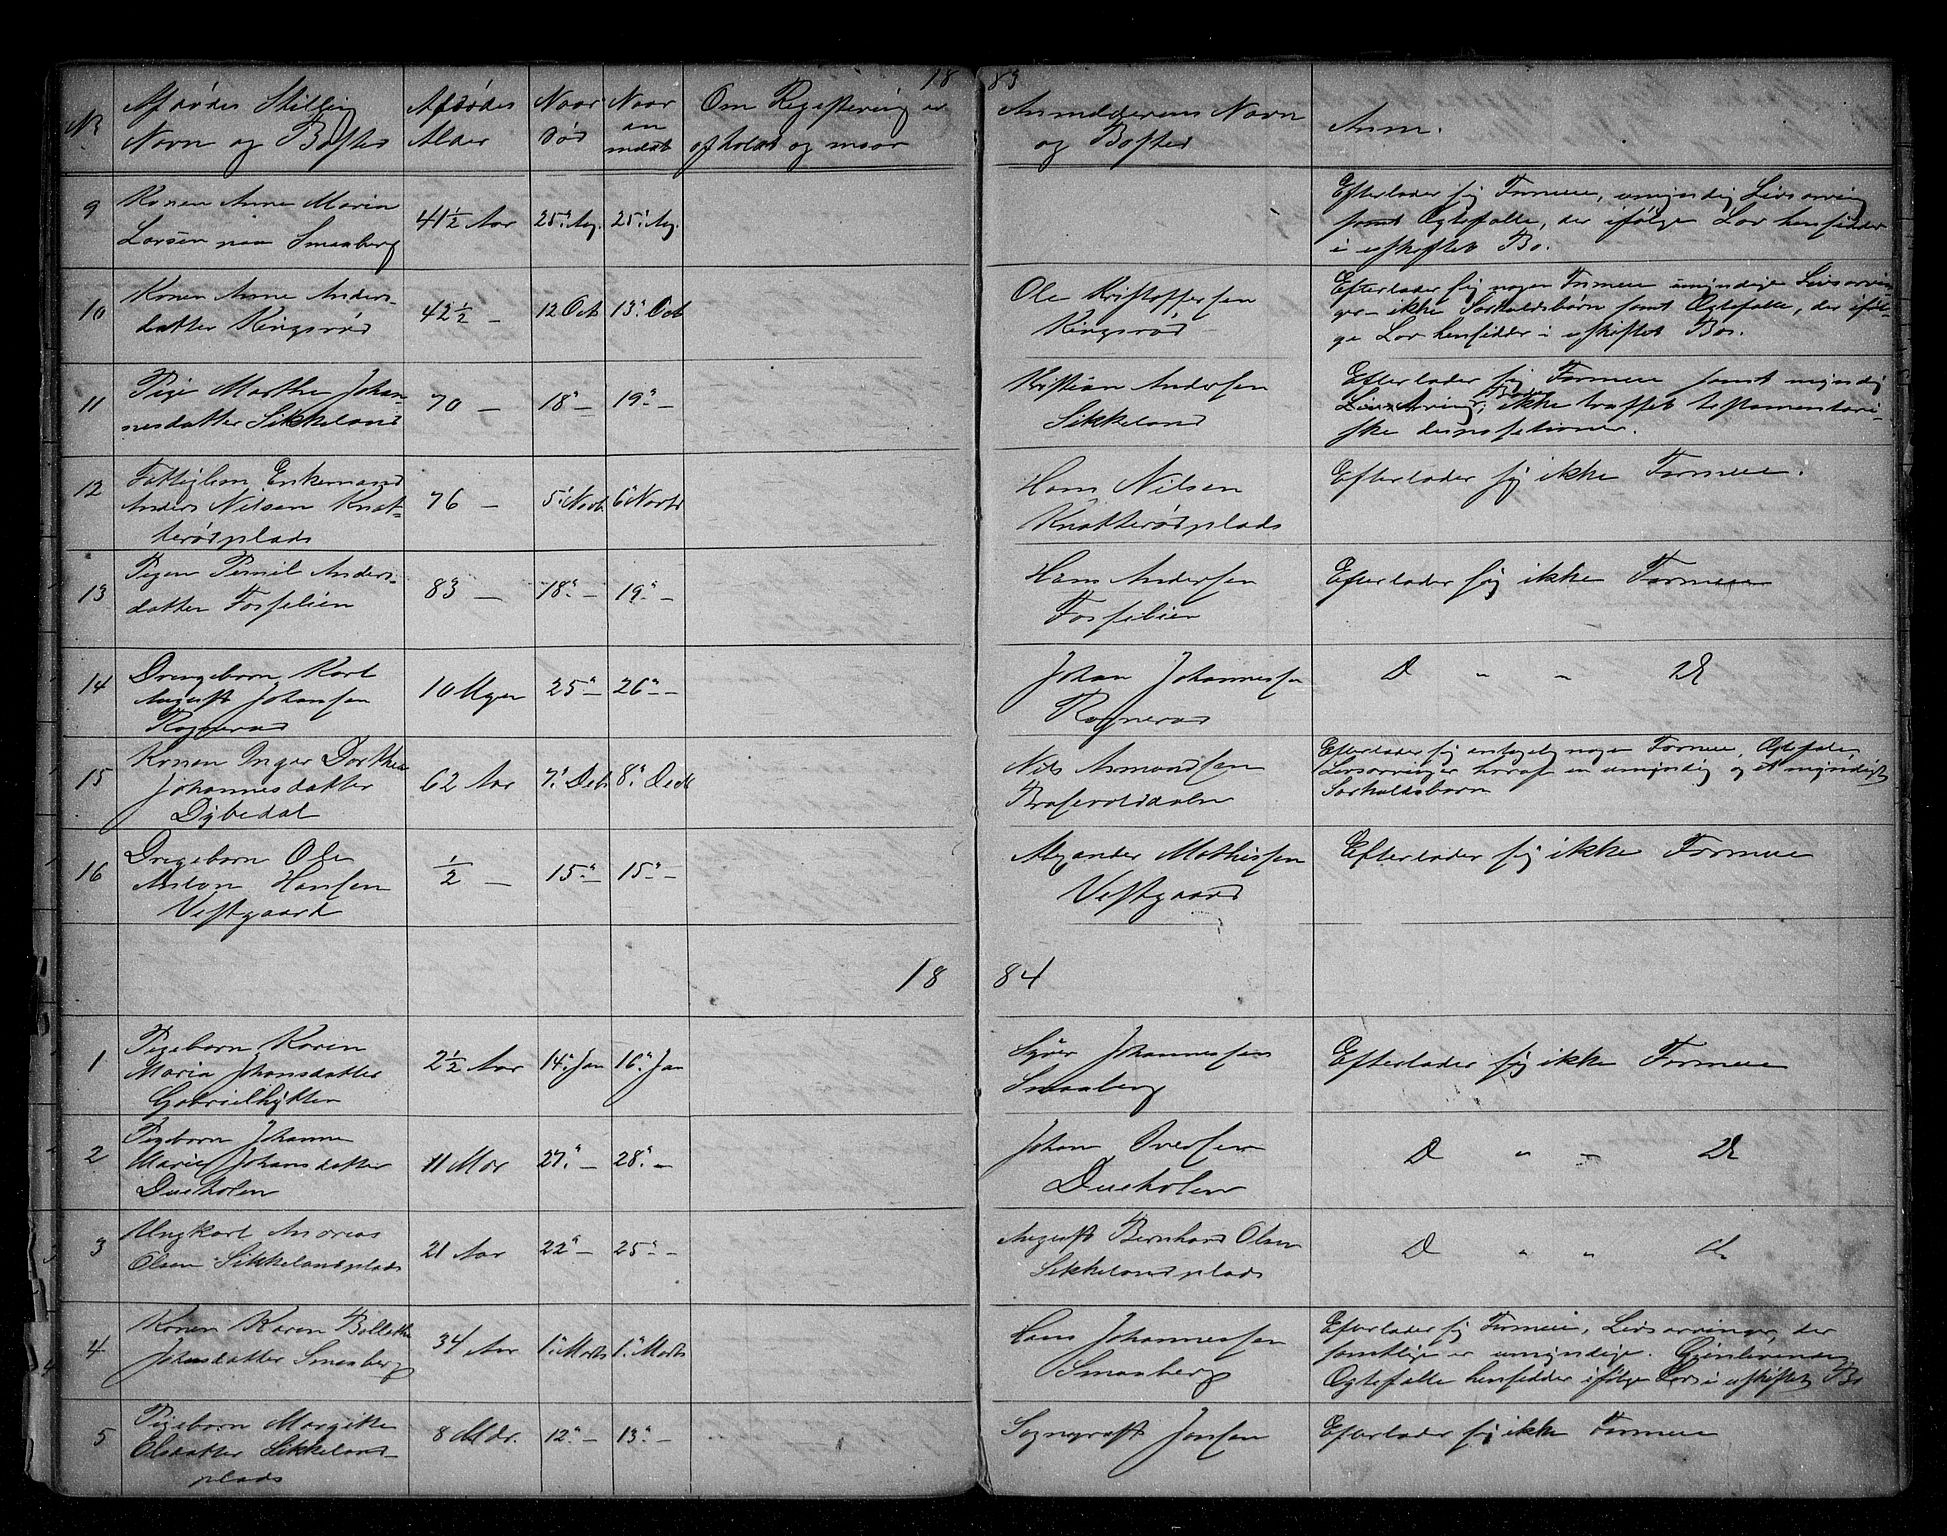 18 83
No
Afdødes Stilling
Navn og Bosted
Afdødes
Alder
Naar
død
Naar
an
meldt
Om Registrering er
afholdt og naar
Anmelderens Navn
og Bosted
Anm.
9
Konen Anne Maria
Larsen Smaaberg
41½ Aar
25' Aug.
25' Aug.
Efterlader sig Formue, umyndig Livsarving
samt Ægtefælle, der ifølge Lov hensidder
i uskiftet Bo.
10
Konen Anne Anders-
datter Ringsrød
42½ —
12 Oct
13' Oct
Ole Kristoffersen
Ringsrød
Efterlader sig nogen Formue umyndige Livsarvin-
ger – ikke Særkuldsbørn samt Ægtefælle, der iføl-
ge Lov hensidder i uskiftet Bo.
11
Pige Marthe Johan-
nesdatter Sikkeland
70 —
18' —
19' —
Kristian Andersen
Sikkeland
Efterlader sig Formue samt myndig
Livsarving, ikke truffet testamentari-
ske
12
Fattiglem Enkemand
Anders Nilsen Knat-
terødplads
76 —
5' Novb
6' Novbr
Hans Nilsen
Knatterødplads
Efterlader sig ikke Formue.
13
Pigen Pernil Anders-
datter Fosselien
83 —
18' —
19' —
Hans Andersen
Fosselien
Efterlader sig ikke Formue
14
Drengebarn Karl
August Johansen
Rognerød
10 Uger
25' —
26' —
Johan Johannessen
Rognerød
D " — D
15
Konen Inger Dorthea
Johannesdatter
Dybedal
62 Aar
7' Deb
8' Decb
Nils Amundsen
Efterlader sig nogen Formue, Ægtefælle,
Livsarvinger hvoraf en umyndig og et myndigt
Særkuldsbarn
16
Drengebarn Ole
Anton Hansen
Vestgaard
½ —
15' —
15' —
Alexander Mathissen
Vestgaard
Efterlader sig ikke Formue
18 84
1
Pigebarn Karen
Maria Johansdatter
Gabrielhytten
2½ Aar
14' Jan
16' Jan
Syver Johannessen
Smaaberg
Efterlader sig ikke Formue
2
Pigebarn Johanne
Marie Johansdatter
Dueholen
11 Mdr
27' —
28' —
Johan Overesen
Dueholen
D " — D
3
Ungkarl Andreas
Olsen Sikkelandplads
21 Aar
22' —
25' —
August Bernhard Olsen
Sikkelandplads
D " " do
4
Konen Karen Bollette
Johansdatter Smaaberg
34 Aar
1' Marts
1' Marts
Hans Johannessen
Smaaberg
Efterlader sig Formue, Livsarvinger, der
samtlige er umyndige. Gjenlevende
Ægtefælle hensidder ifølge Lov i uskiftet Bo
5
Pigebarn Margithe
Olsdatter Sikkeland-
plads
8 Mdr.
12' —
13' —
Sogneprest Jensen
Efterlader sig ikke Formue